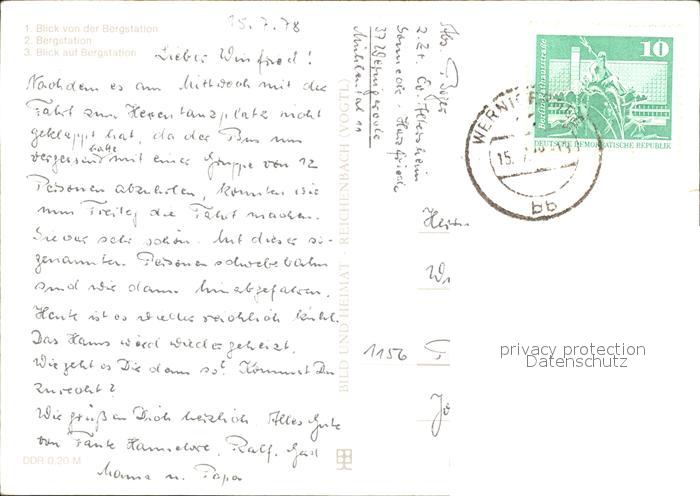 15.7.78
1. Blick von der Bergstation
2. Bergstation
3. Blick auf Bergstation
Lieber Winfried!
Nachdem es am Mittwoch mit der
Fahrt zum Hexentanzplatz nicht
geklappt hat, da der Bus uns
vergessen hatte mit einer Gruppe von 12
Personen abzuholen, konnten wir
nun Freitag die Fahrt machen.
Sie war sehr schön. Mit dieser so-
genannten Personenschwebebahn
sind wir dann hinabgefahren.
Heute ist es wieder reichlich kühl.
Das Haus wird wieder geheizt.
Wie geht es Dir denn so? Kommst Du
zurecht?
Wir grüßen Dich herzlich. Alles Gute
von Tante Hannelore, Ralf, Gerd
Mama u. Papa
DDR 0,20 M
BILD UND HEIMAT · REICHENBACH (VOGTL)
Abs.
z. Zt. Ev. Altersheim
Haus
37 Wernigerode
Mühlental 11
Berlin, Rathausstraße
10
DEUTSCHE DEMOKRATISCHE REPUBLIK
WERNIGERODE
15.7.78
bb
Herrn
Wi
1156
privacy protection
Datenschutz